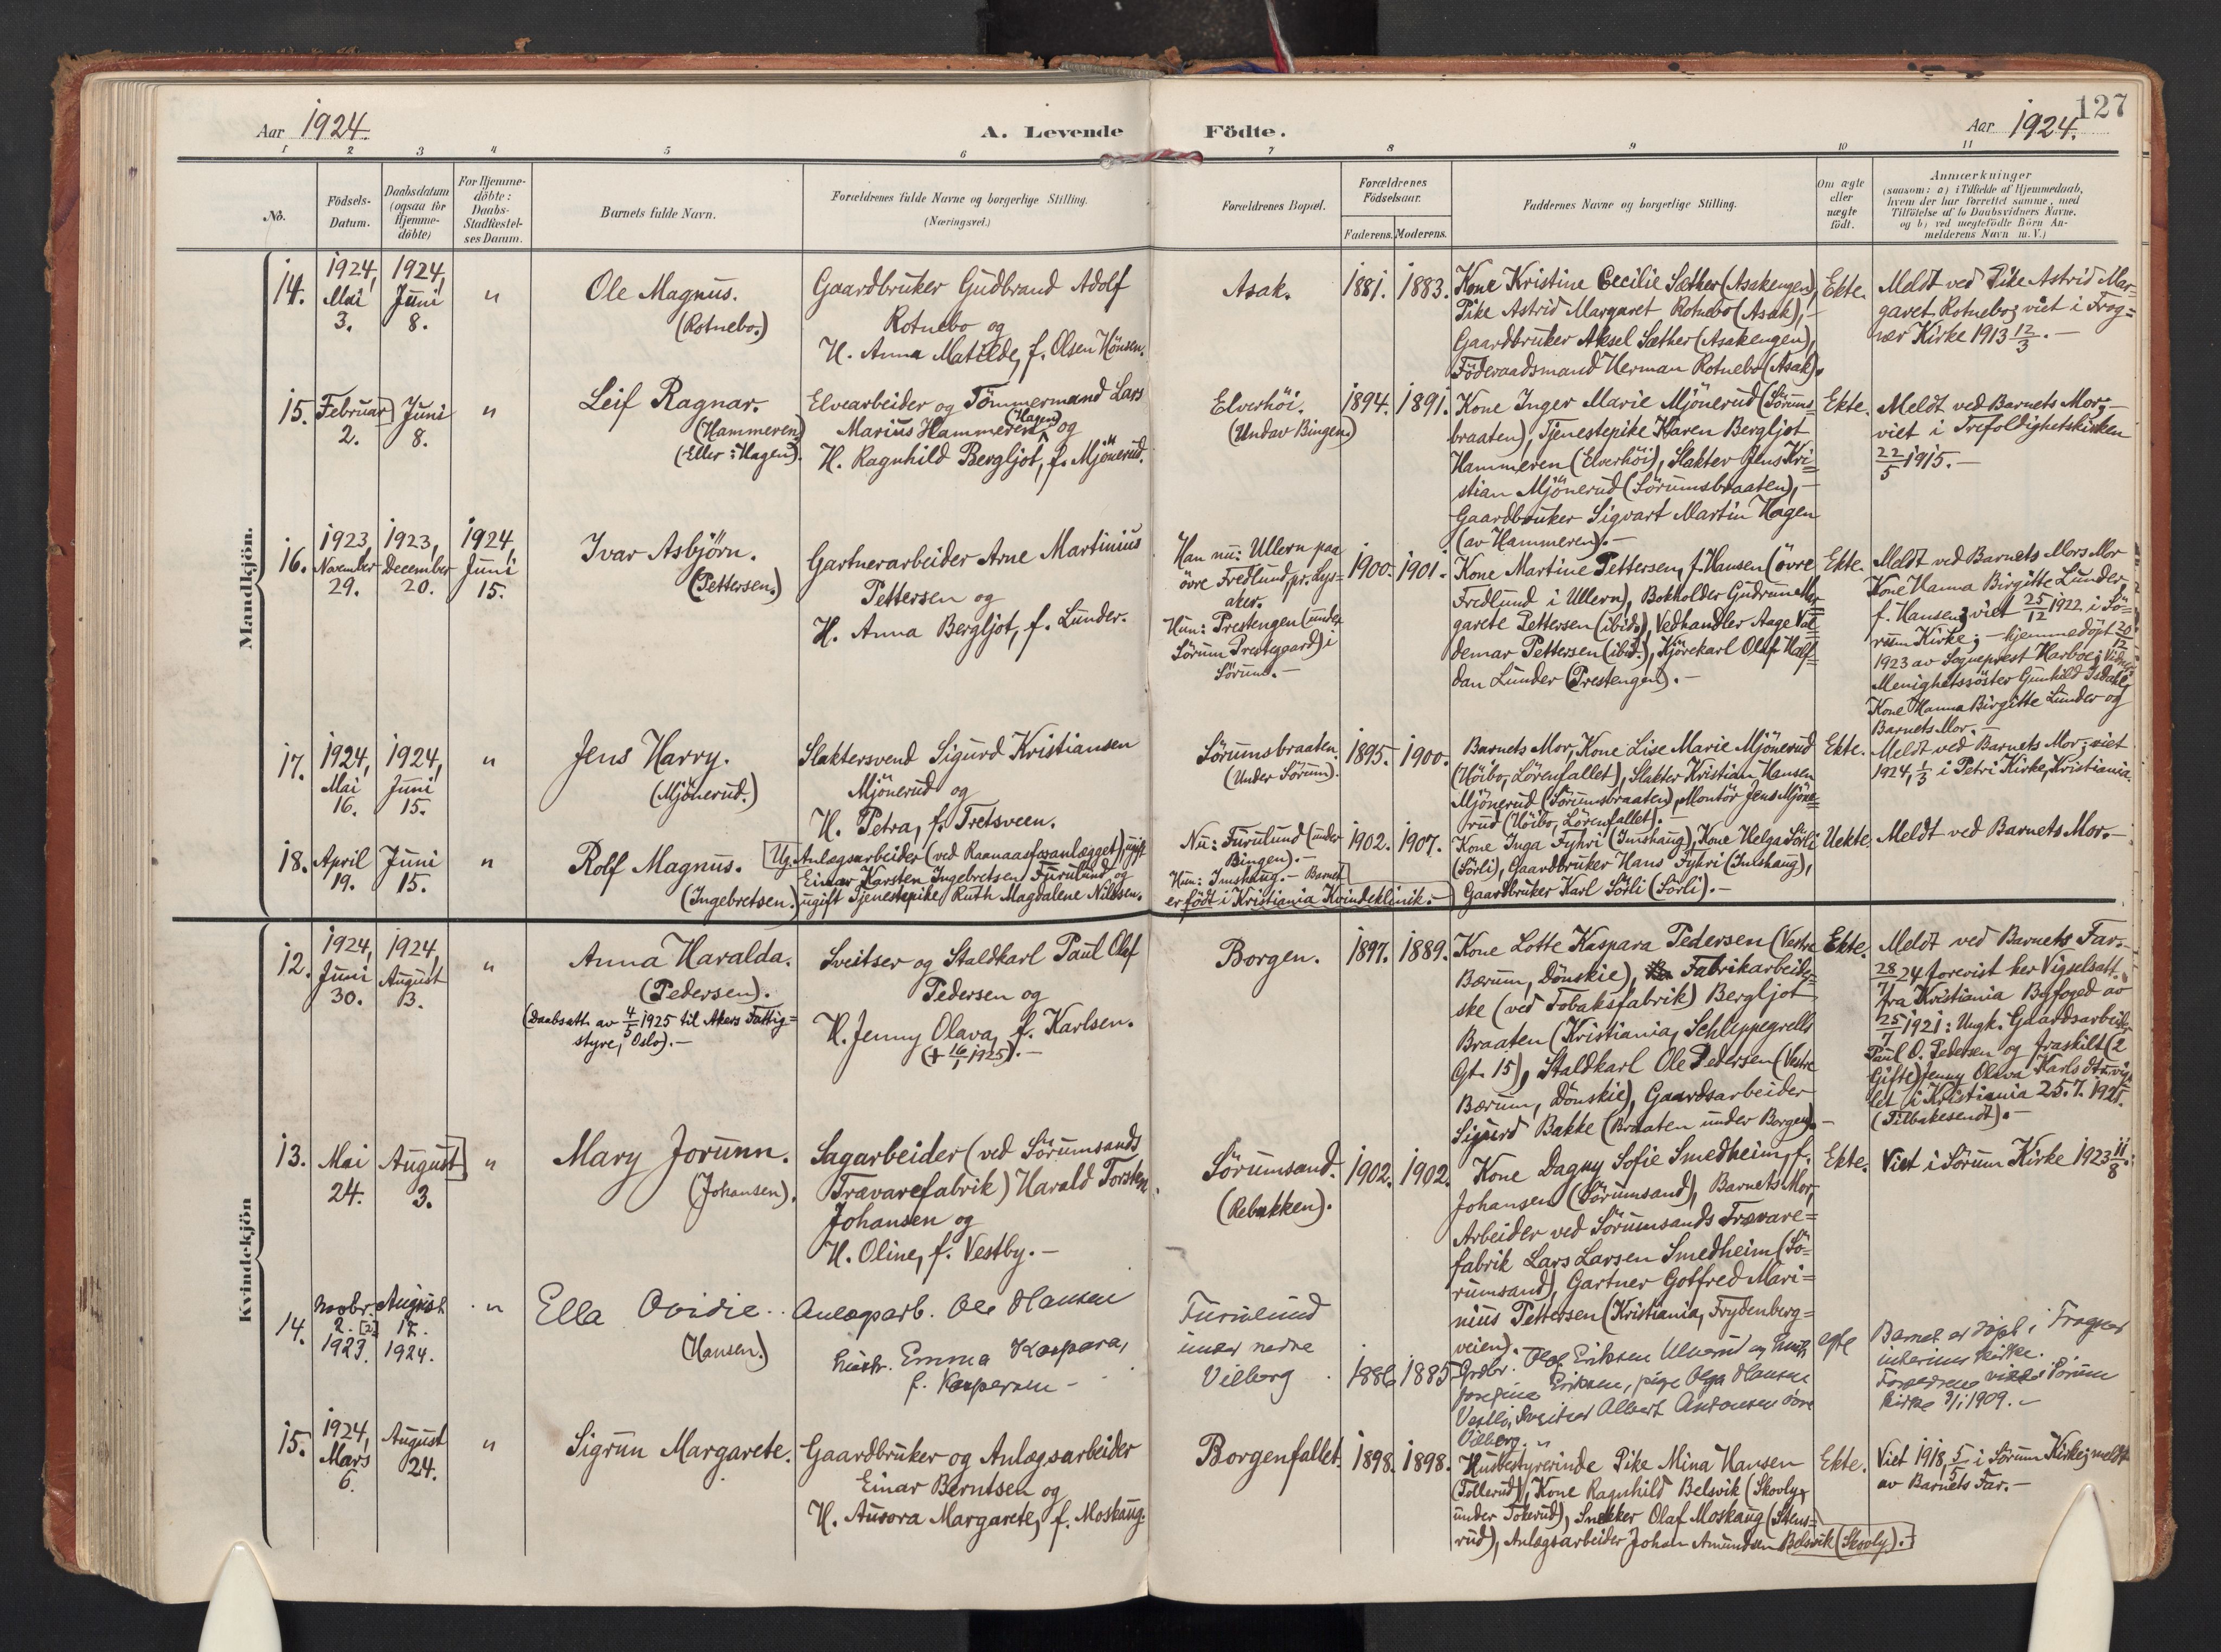 127
Aar 1924.
A. Levende Födte.
Aar 1924.
1 2 3 4 5 6 7 8 9 10 11
No.
Födsels-
Datum.
Daabsdatum
(ogsaa for
Hjemme-
döbte)
For Hjemme-
döbte:
Daabs-
Stadfæstel-
ses Datum.
Barnets fulde Navn.
Forældrenes fulde Navne og borgerlige Stilling.
(Næringsvei.)
Forældrenes Bopæl.
Forældrenes
Födselsaar.
Faderens. Moderens.
Faddernes Navne og borgerlige Stilling.
Om ægte
eller
uægte
födt.
Anmærkninger
(saasom: a) i Tilfælde af Hjemmedaab,
hvem der har forrettet samme, med
Tilföielse af to Daabsvidners Navne,
og b) ved uægtefödte Börn An-
melderens Navn m. V.)
Mandkjön.
14.
1924,
Mai
3.
1924,
Juni
8.
"
Ole Magnus.
(Rotnebo.)
Gaardbruker Gudbrand Adolf
Rotnebo og
H. Anna Matilde, f. Olsen Hönsen.
Asak.
1881. 1883.
Kone Kristine Cecilie Sæther (Asakengen),
Pike Astrid Margaret Rotnebo (Asak),
Gaardbruker Aksel Sæther (Asakengen),
Föderaadsmand Herman Rotnebo (Asak).
Ekte.
Meldt ved Pike Astrid Mar=
garet Rotnebo; viet i Frog=
ner Kirke 1913 12/3. —
15.
Februar
2.
Juni
8.
"
Leif Ragnar.
(Hammeren)
(Eller: Hagen).
Elvearbeider og Tömmermand Lars
(Hagen)
Marius Hammeren og
H. Ragnhild Bergljot, f. Mjönerud.
Elverhöi.
(Undav Bingen)
1894. 1891.
Kone Inger Marie Mjönerud (Sörums=
braaten), Tjenestepike Karen Bergljot
Hammeren (Elverhöi), Slakter Jens Kri=
stian Mjönerud (Sörumsbraaten), —
Gaardbruker Sigvart Martin Hagen
(av Hammeren). —
Ekte.
Meldt ved Barnets Mor; —
viet i Trefoldighetskirken
22/5 1915. —
16.
1923,
November
29.
1923,
December
20.
1924,
Juni
15.
Ivar Asbjørn.
(Pettersen.)
Gartnerarbeider Arne Martinius
Pettersen og
H. Anna Bergljot, f. Lunder.
Han nu: Ullern paa
övre Fredlund, pr. Lys=
aker.
Hun: Prestengen (under
Sörum Prestegaard) i
Sörum. —
1900. 1901.
Kone Martine Pettersen, f. Hansen (övre
Fredlund i Ullern), Bokholder Gudrun Mar=
garete Pettersen (ibid.), Vedhandler Aage Val=
demar Pettersen (ibid.), Kjörekarl Olaf Half=
dan Lunder (Prestengen). —
Ekte.
Meldt ved Barnets Mors Mor
Kone Hanna Birgitte Lunder,
f. Hansen; viet 25/12 1922 i Sö=
rum Kirke; — hjemmedöpt 20/12
1923 av Sogneprest Harboe; Vidner:
Menighetssöster Gunhild Isdahl,
Kone Hanna Birgitte Lunder og
Barnets Mor. —
17.
1924,
Mai
16.
1924,
Juni
15.
"
Jens Harry.
(Mjönerud.)
Slaktersvend Sigurd Kristiansen
Mjönerud og
H. Petra, f. Tretsveen.
Sörumsbraaten.
(Under Sörum).
1895. 1900.
Barnets Mor, Kone Lise Marie Mjönerud
(Höibo, Lörenfallet), Slakter Kristian Hansen
Mjönerud (Sörumsbraaten), Montör Jens Mjöne=
rud (Höibo, Lörenfallet). —
Ekte.
Meldt ved Barnets Mor; viet
1924, 1/3 i Petri Kirke, Kristiania.
18.
April
19.
Juni
15.
"
Rolf Magnus.
(Ingebretsen.)
Ug. Anlægsarbeider (ved Raanaasfosanlægget), ugift
Einar Karsten Ingebretsen Furulund og
ugift Tjenestepike Ruth Magdalene Nilssen.
Nu: Furulund (under
Bingen). —
Hun: Imshaug. — Barnet
er födt i Kristiania Kvindeklinik. —
1902. 1907.
Kone Inga Fyhri (Imshaug), Kone Helga Sörli
(Sörli), Gaardbruker Hans Fyhri (Imshaug),
Gaardbruker Karl Sörli (Sörli). —
Uekte.
Meldt ved Barnets Mor. —
Kvindekjön
12.
1924,
Juni
30.
1924,
August
3.
"
Anna Haralda.
(Pedersen).
(Daabsatt. av 4/5 1925 til Akers Fattig=
styre, Oslo). —
Sveitser og Staldkarl Paul Olaf
Pedersen og
H. Jenny Olava, f. Karlsen.
(+ 16/1 1925). —
Borgen.
1897. 1889.
Kone Lotte Kaspara Pedersen (Vestre
Bærum, Dönskie), Fabrikarbeider=
ske (ved Tobaksfabrik) Bergljot
Braaten (Kristiania, Schleppegrells
Gt. 15), Staldkarl Ole Pedersen (Vestre
Bærum, Dönskie), Gaardsarbeider
Sigurd Bakke (Braaten under Borgen). —
Ekte.
Meldt ved Barnets Far. —
28/7 24 forevist her Vigselsatt.
fra Kristiania Byfoged av
25/7 1921: Ungk. Gaardsarbeider
Paul O. Pedersen og fraskilt (2
Gifte) Jenny Olava Karlsdtr. vi=
et i Kristiania 25.7.1921.
(Tilbakesendt). —
13.
Mai
24.
August
3.
"
Mary Jorunn.
(Johansen).
Sagarbeider (ved Sörumsands
Trævarefabrik) Harald Torsten
Johansen og
H. Oline, f. Vestby. —
Sörumsand.
(Rebakken).
1902. 1902.
Kone Dagny Sofie Smedheim, f.
Johansen (Sörumsand), Barnets Mor,
Arbeider ved Sörumsands Trævare=
fabrik Lars Larsen Smedheim (Sö=
rumsand), Gartner Gotfred Mari=
nius Pettersen (Kristiania, Frydenberg=
veien).
Ekte.
Viet i Sörum Kirke 1923 11/8.
14.
Novbr.
2. [2]
1923.
August
17.
1924.
"
Ella Ovidie.
(Hansen.)
Anlægsarb. Ole Hansen
hustr. Emma Kaspara,
f. Kaspersen —
Furulund
under nedre
Vilberg
1886 1885
Grdbr. Olaf Eriksen Ulverud og hustr.
Josefine Eriksen, pige Olga Hansen
Vestli, Sveitser Albert Antonsen övre
Vilberg. "
egte
Barnet er döpt i Frogner
interims kirke.
Forældrene viet i Sörum
kirke 9/1 1909. —
15.
1924,
Mars
6.
August
24.
"
Sigrun Margarete.
Gaardbruker og Anlægsarbeider
Einar Berntsen og
H. Aurora Margarete, f. Moskaug.
Borgenfallet.
1898. 1898.
Husbestyrerinde Pike Mina Hansen
(Tollerud), Kone Ragnhild Belsvik (Skovly,
under Tokerud), Snekker Olaf Moskaug (Stens=
rud), Anlægsarbeider Johan Amundsen Belsvik (Skovly). —
Ekte.
Viet 1918, 5/5 i Sörum Kirke; meldt
av Barnets Far. —